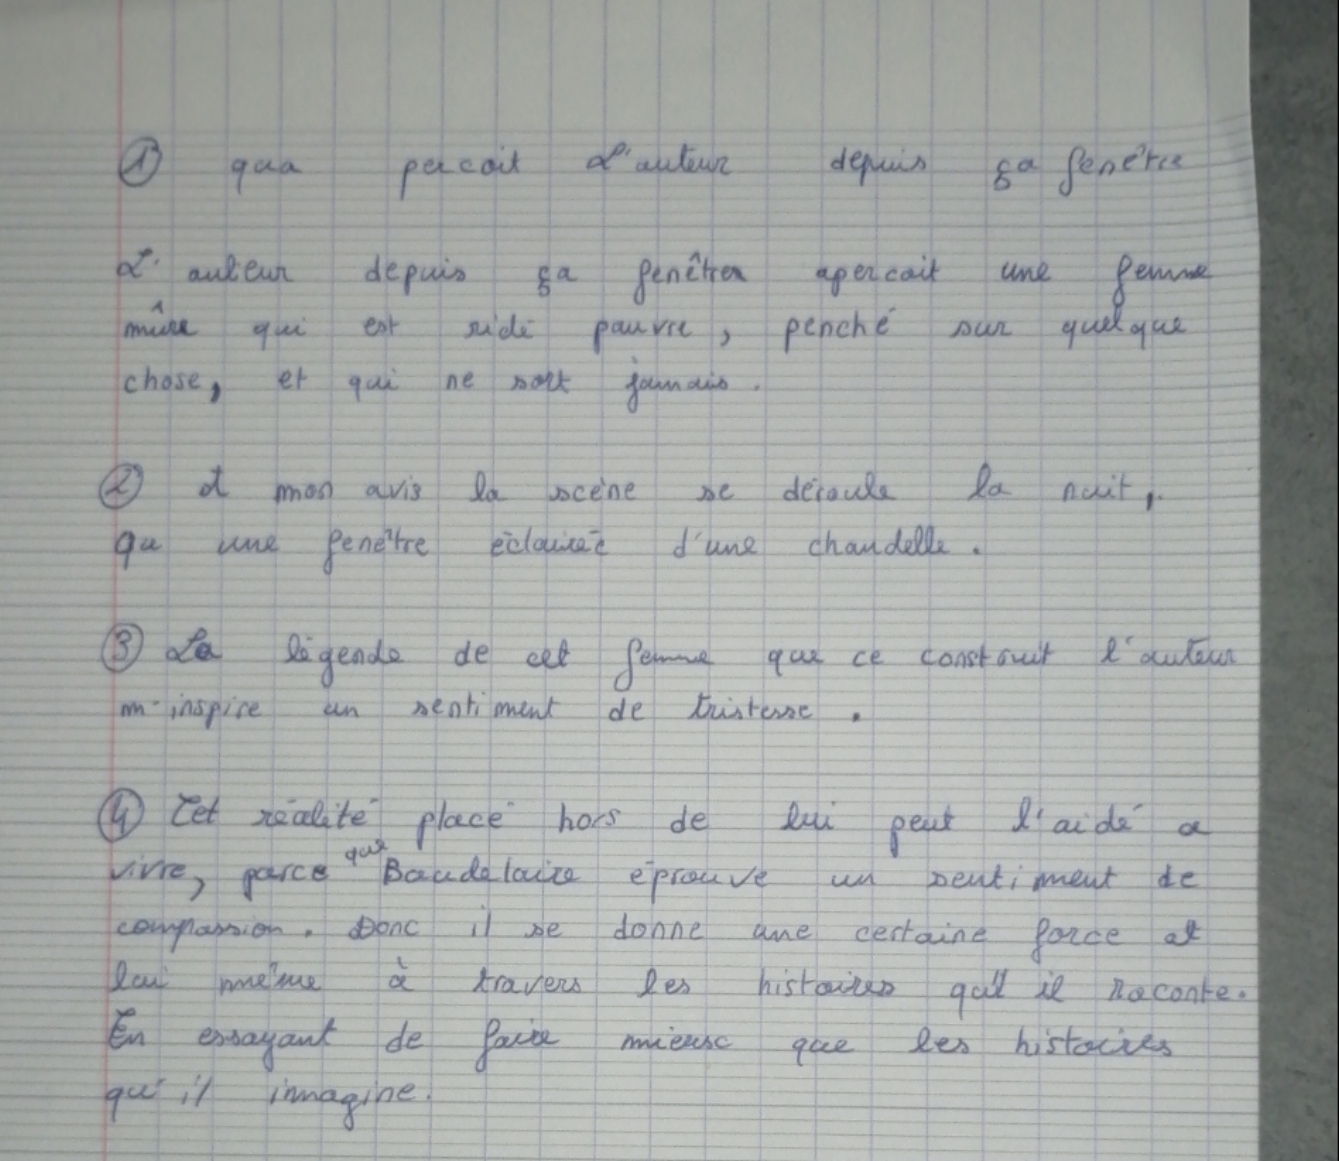 ① qua percoit L'auteur depuis sa fenêtre
L'auteur depuis sa fenêtrer apercoit une femme
mûre qui est ridé pauvre, penché sur quelque
chose, et qui ne sort jamais.
② A mon avis la scène se déroule la nuit,
qu une fenêtre éclairée d'une chandelle.
③ La légende de cet femme que ce construit l'auteur
m'inspire un sentiment de tristesse.
④ Cet réalité placé hors de lui peut l'aidé a
vivre, parce que Baudelaire éprouve un sentiment de
compassion. Donc il se donne une certaine force et
lui même à travers les histoires qu'il raconte.
En essayant de faire mieux que les histoires
qu'il immagine.